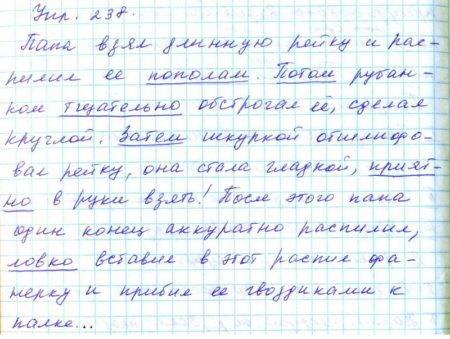 Упр. 238.
Папа взял длинную рейку и рас-
пилил ее пополам. Потом рубан-
ком тщательно обстрогал её, сделал
круглой. Затем шкуркой отшлифо-
вал рейку, она стала гладкой, прият-
но в руки взять! После этого папа
один конец аккуратно распилил,
ловко вставил в этот распил фа-
нерку и прибил ее гвоздиками к
палке...